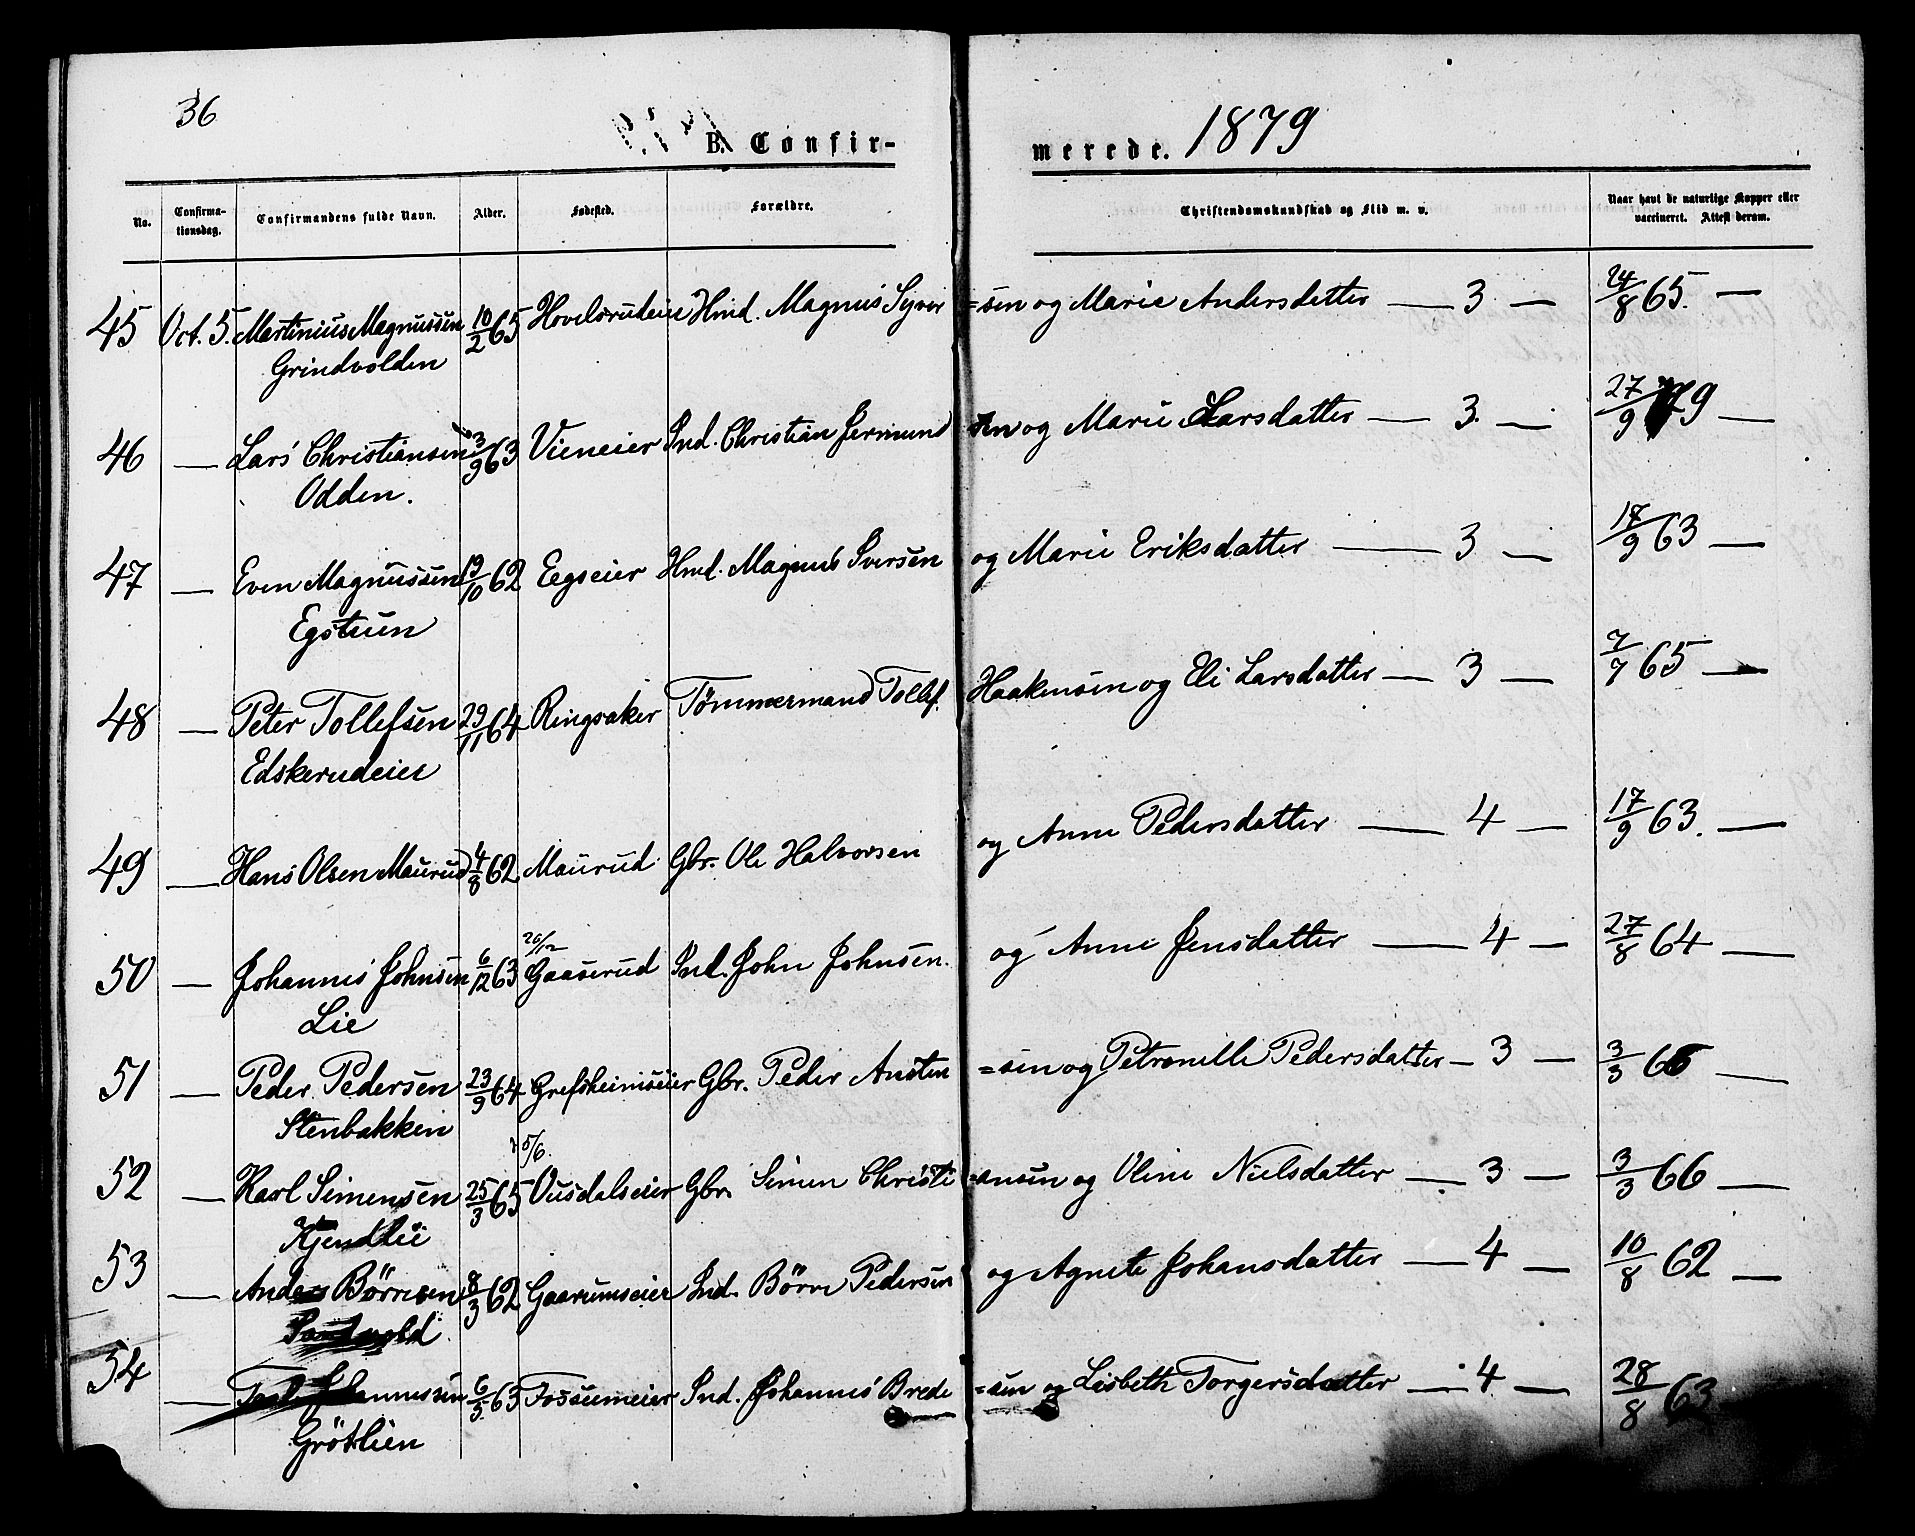 36
B. Confir-
merede. 1879
No. Confirma-tionsdag. Confirmandens fulde Navn. Alder. Fødested. Forældre. Christendomskundskab og Flid m. v. Naar havt de naturlige Kopper eller vaccineret. Attest derom.
45 Oct. 5. Martinius Magnussen 10/2 65 Hovelsrudeie Hmd. Magnus Syver =sen og Marie Andersdatter — 3 — 24/8 65. —
Grindvolden
46 — Lars Christiansen 3/9 63 Vieneier Ind. Christian Jermund sen og Marie Larsdatter — 3. — 27/9 79 —
Odden.
47 — Even Magnussen 19/10 62 Eegseier Hmd. Magnus Sversen og Marie Eriksdatter — 3 — 17/9 63 —
Egstuen
48 — Peter Tollefsen 29/11 64 Ringsaker Tømmermand Tollef. Haakensen og Eli Larsdatter — 3 — 7/7 65 —
Edskerudeier
49 — Hans Olsen Maurud 4/8 62 Maurud Gbr. Ole Halvorsen og Anne Pedersdatter — 4 — 17/9 63. —
20/12
50 — Johannes Johnsen 6/12 63 Gaaserud Ind. John Johnsen. og Anne Jensdatter — 4 — 27/8 64 —
Lie
51 — Peder Pedersen 23/9 64 Grefsheimseier Gbr. Peder Austen =sen og Petronille Pedersdatter — 3 — 3/3 66 —
Stenbakken
5/6.
52 — Karl Simensen 25/3 65 Ousdalseier Gbr. Simen Christi =ansen og Oline Nielsdatter — 3 — 3/3 66 —
Kjendlie
53 — Anders Børresen 8/3 62 Gaarumseier Ind. Børre Pedersen og Agnete Johansdatter — 4 — 10/8 62 —
Sandvold
54 — Johannessen 6/5 63 Fossumeier Ind. Johannes Brede =sen og Lisbeth Torgersdatter — 4 — 28/8 63
Grøtlien